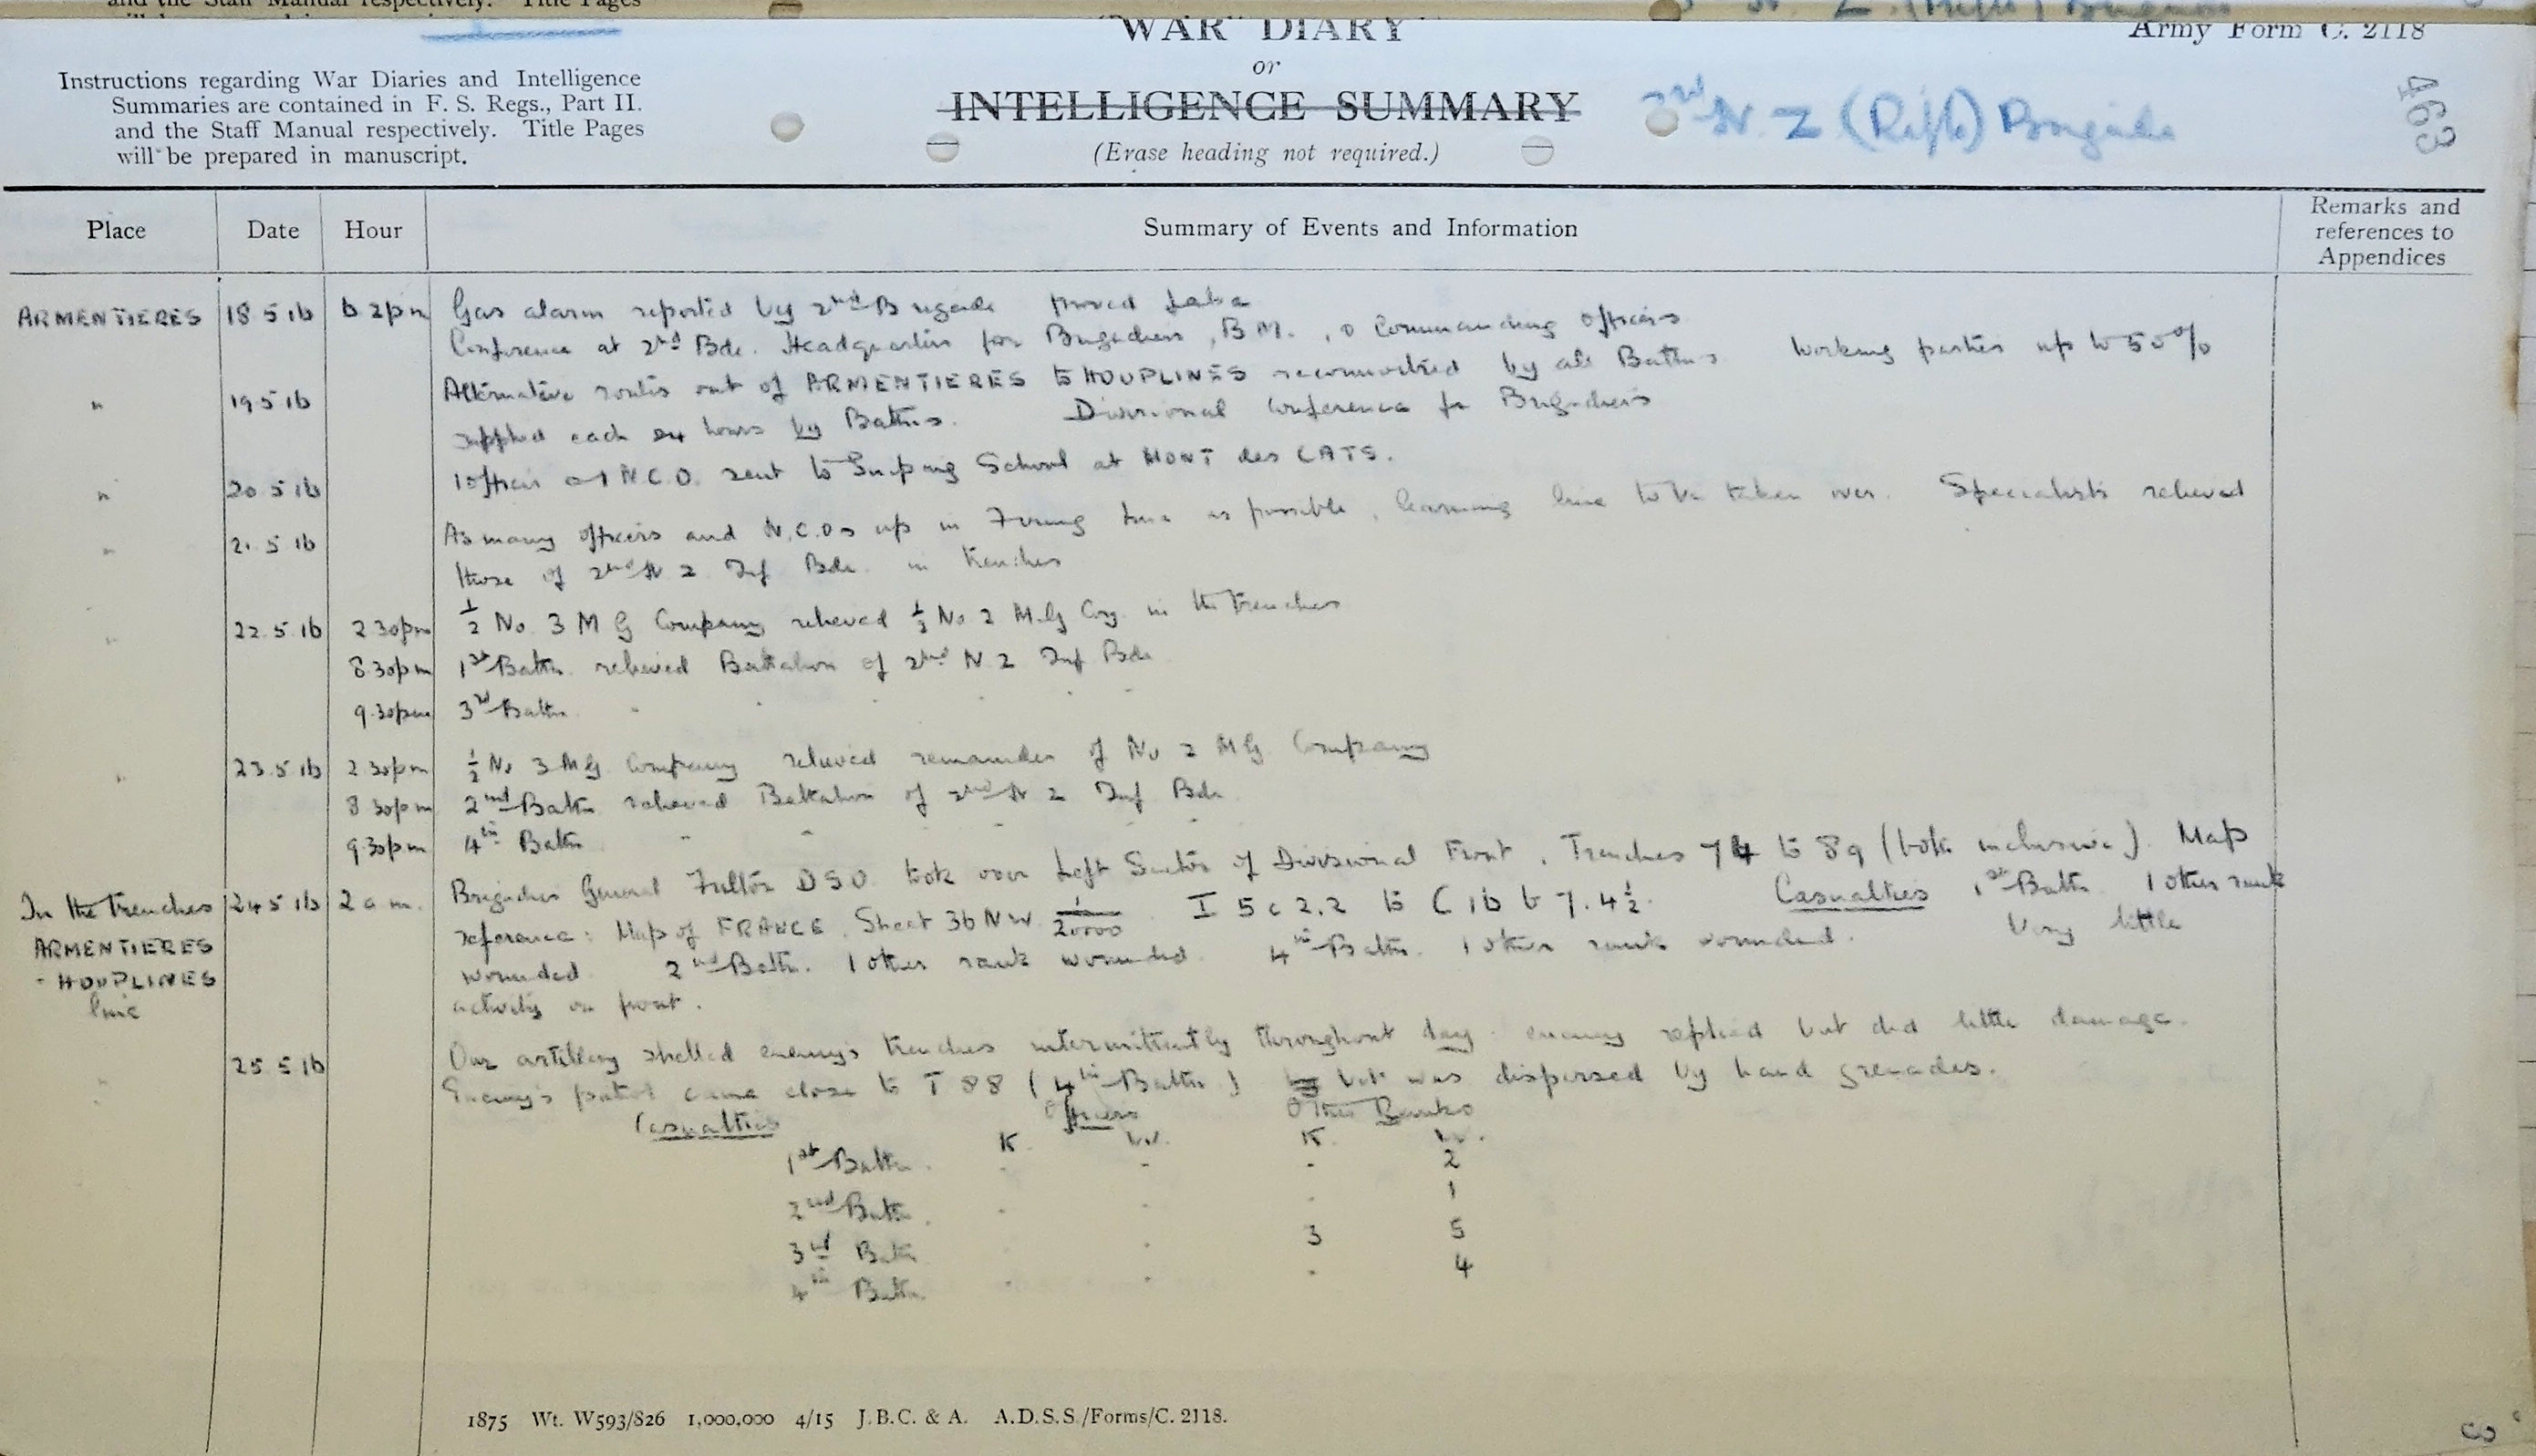 and the Staff Manual respectively. Title Pages
WAR DIARY
or
INTELLIGENCE SUMMARY
(Erase heading not required.)
Army Form C. 2118
Instructions regarding War Diaries and Intelligence
Summaries are contained in F. S. Regs., Part II.
and the Staff Manual respectively. Title Pages
will be prepared in manuscript.
3rd N. Z (Rifle) Brigade
463
Place Date Hour Summary of Events and Information Remarks and references to Appendices
ARMENTIERES 18 5 16 6 2pm Gas alarm reported by 2nd Brigade proved false
Conference at 2nd Bde. Headquarters for Brigadiers, B M., Commanding Officers
" 19 5 16 Alternative routes out of ARMENTIERES to HOUPLINES reconnoitred by all Battns Working parties up to 50%
supplied each 24 hours by Battns. Divisional Conference for Brigadiers
" 20 5 16 1 officer 1 N.C.O. sent to Sniping School at MONT des CATS.
" 21. 5 16 As many officers and N.C.Os up in Firing line as possible, learning line to be taken over. Specialists relieved
those of 2nd N Z Inf Bde. in trenches
" 22. 5. 16 2 30pm ½ No. 3 M G Company relieved ½ No 2 M.G Coy in the trenches
8.30pm 1st Battn. relieved Battalion of 2nd N Z Inf Bde
9.30pm 3rd Battn " " " "
" 23. 5 16 2 30pm ½ No 3 M G Company relieved remainder of No 2 M G. Company
8 30pm 2nd Battn relieved Battalion of 2nd N Z Inf Bde.
9.30pm 4th Battn " " " " "
In the trenches 24 5 16 2 a m. Brigadier General Fulton D S O took over Left Sector of Divisional Front. Trenches 74 to 89 (both inclusive). Map
ARMENTIERES reference: Map of FRANCE. Sheet 36 N W 1/20000 I 5 c 2.2 to C 16 b 7. 4½. Casualties 1st Battn. 1 other rank
- HOUPLINES wounded 2nd Battn. 1 other rank wounded. 4th Battn. 1 other rank wounded. Very little
line activity on front.
" 25. 5 16 Our artillery shelled enemy's trenches intermittently throughout day. enemy replied but did little damage.
Enemy's patrol came close to T 88 (4th Battn) but was dispersed by hand grenades.
Casualties Officers Other Ranks
K. W. K. W.
1st Battn. - - 2
2nd Battn. - - - 1
3rd Battn - 3 5
4th Battn. - - - 4
1875 Wt. W593/826 1,000,000 4/15 J.B.C. & A. A.D.S.S./Forms/C. 2118.